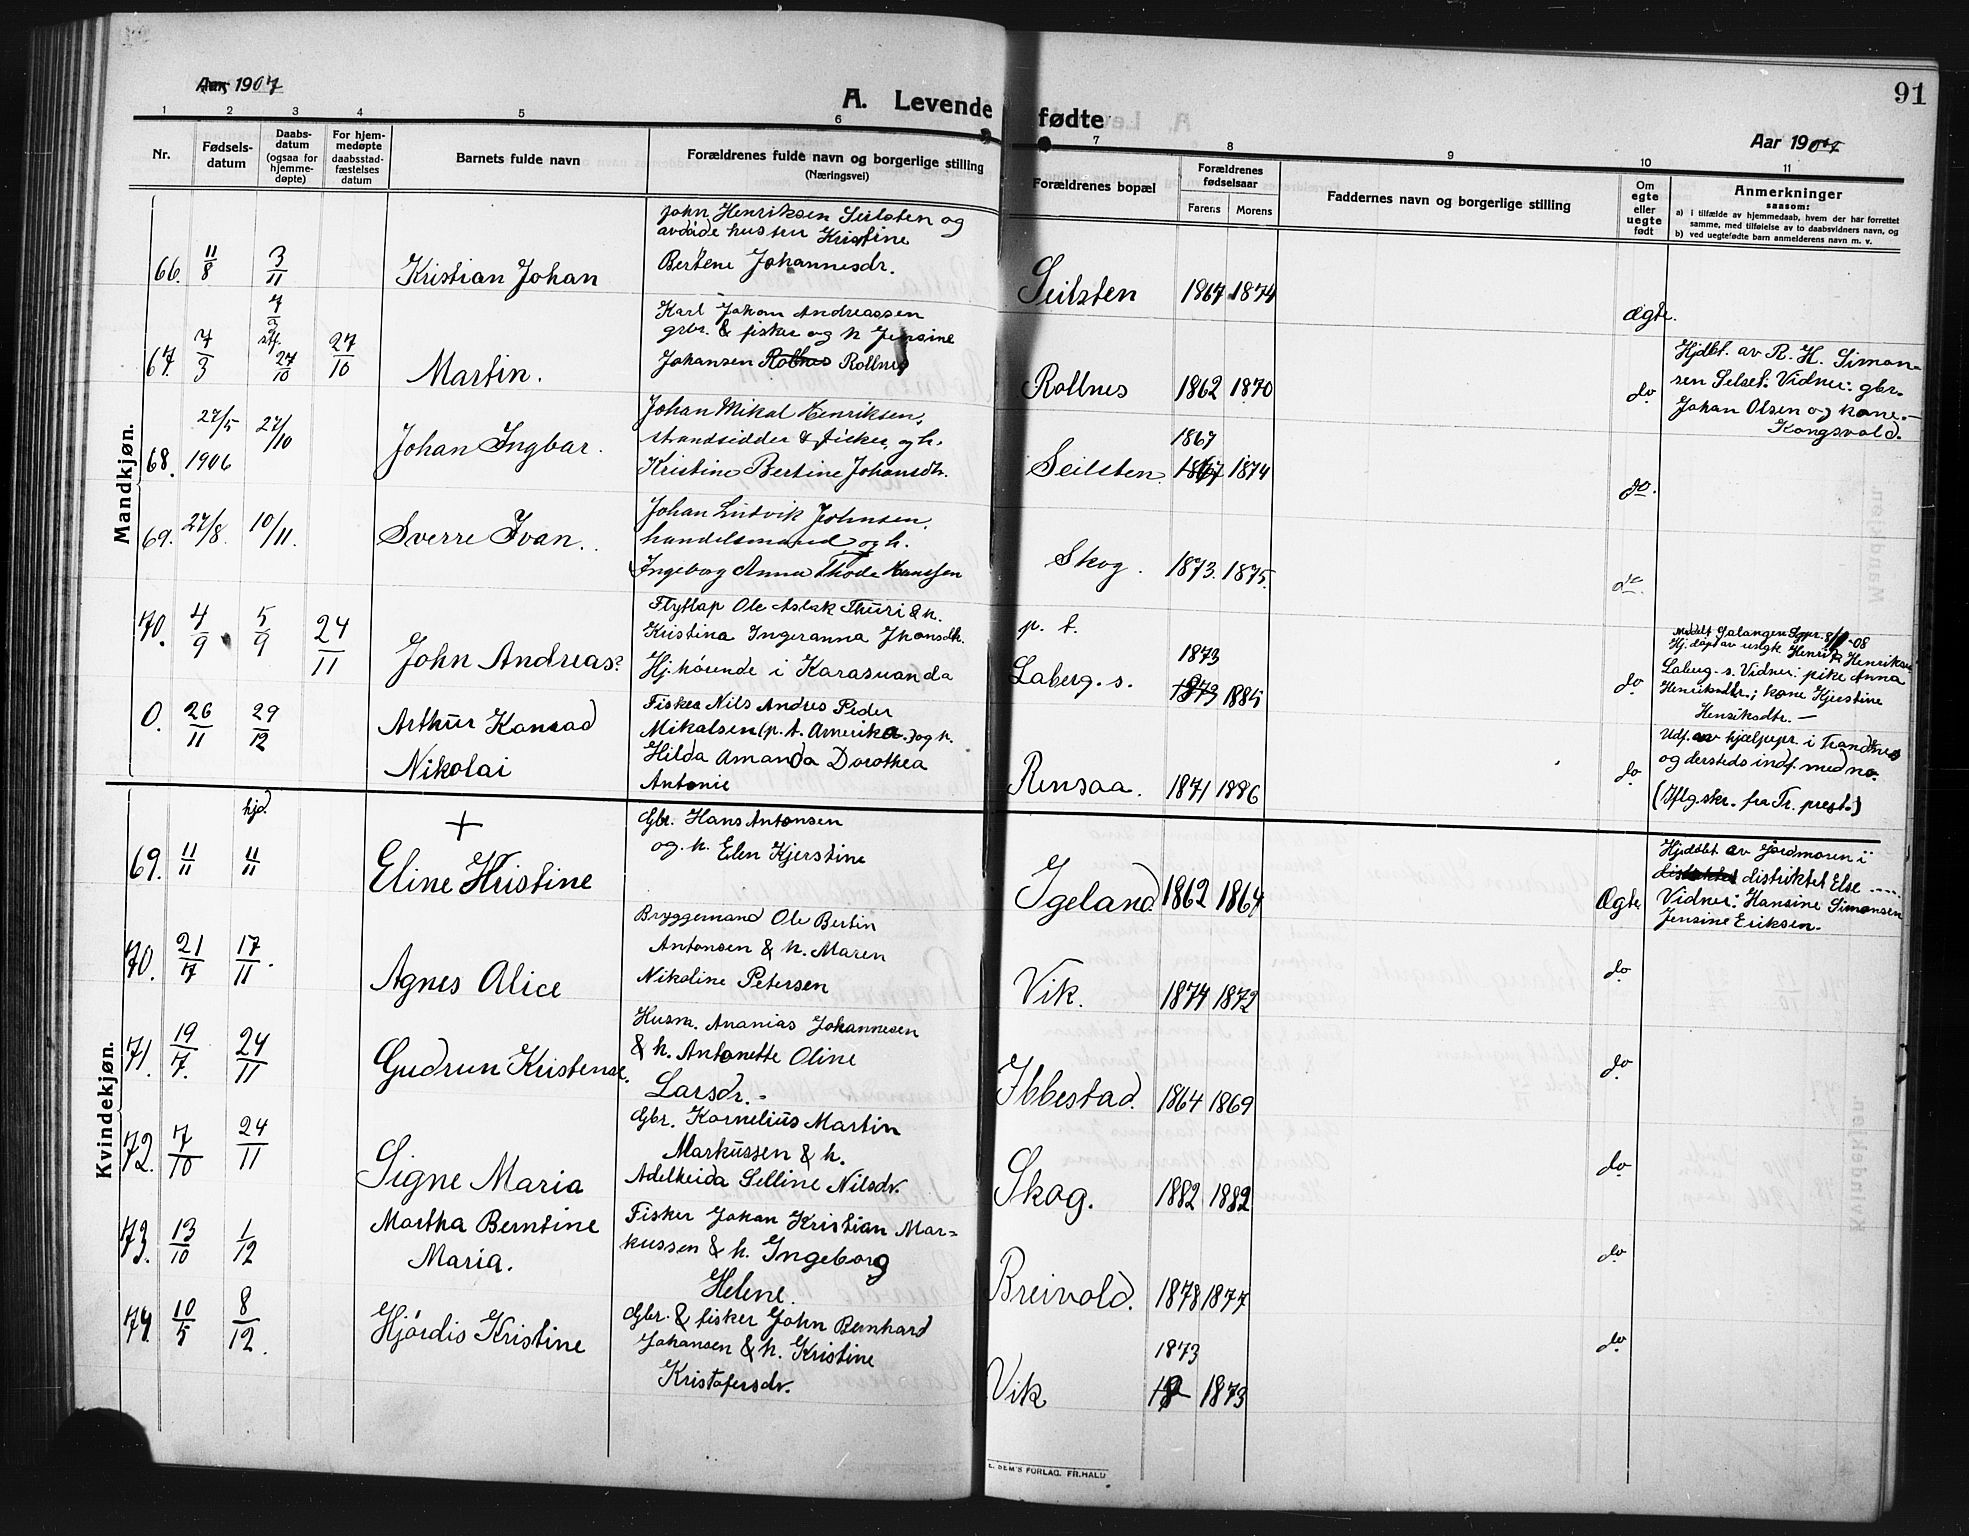 Aar 1907
A. Levende fødte
91
Aar 1907
1 2 3 4 5 6 7 8 9 10 11
Nr.
Fødsels-
datum
Daabs-
datum
(ogsaa for
hjemme-
døpte)
For hjem-
medøpte
daabsstad-
fæstelses
datum
Barnets fulde navn
Forældrenes fulde navn og borgerlige stilling
(Næringsvei)
Forældrenes bopæl
Forældrenes
fødselsaar
Farens Morens
Faddernes navn og borgerlige stilling
Om
egte
eller
uegte
født
Anmerkninger
saasom:
a) i tilfælde av hjemmedaab, hvem der har forrettet
samme, med tilføielse av to daabsvidners navn, og
b) ved uegtefødte barn anmelderens navn m. v.
Mandkjøn.
John Henriksen Seilsten og
avdøde hustru Kristine
Bertene Johannesdr.
66. 11/8 3/11 Kristian Johan Seilsten 1867 1874 Ægte.
Karl Johan Andreassen
gbr. & fisker og h Jensine
Johansen Rollnes Rollnes
67. 7/3 7/3 stf. 27/10 27/10 Martin. Rollnes 1862 1870 do
Hjdbt. av R. H. Simon-
sen Selset. Vidner: gbr.
Johan Olsen og kone. -
Kongsvold.
Johan Mikal Henriksen,
strandsidder & fisker, og h.
Kristine Bertine Johansdtr.
68. 27/5 1906 27/10 Johan Ingbar. Seilsten. 1867 1867 1874 do.
Johan Ludvik Johnsen,
handelsmand og h.
Ingeborg Anna Thode Hanssen
69. 27/8. 10/11. Sverre Ivan. Skog. 1873. 1875. do.
Flytlap Ole Aslak Thuri & h.
Kristina Ingeranna Jhonsdtr.
Hj.hörende i Karasuanda
70. 4/9 5/9 24/11 John Andreas? p. t.
Laberg. s. 1873 1873 1885 do
Meddt Salangen Sgpr. 8/1-08
Hj. døpt av uegte Henrik Henriksen
Laberg. s. Vidner: pike Anna
Henriksdtr.; kone Kjerstine
Henriksdtr. -
Fisker Nils Andres Peder
Mikalsen (p. t. Amerika.) og h.
Hilda Amanda Dorothea
Antonie
0. 26/11 29/12 Arthur Konrad
Nikolai Rensaa. 1871 1886 do
Udf. av hjælpepr. i Trandnes
og dersteds indf. med no.
(Iflg. skr. fra Tr. prest.)
Kvindekjøn.
Gbr. Hans Antonsen
og. h. Elen Kjerstine
69. 11/11 hjd. 11/11 + Eline Kristine Igeland. 1862 1864 Ægte
Hjddbt av jordmoren i
distriktet Else ....
Vidner: Hansine Simonsen
Jensine Eriksen.
Bryggemand Ole Bertin
Antonsen & h. Maren
Nikoline Petersen
70. 21/7 17/11. Agnes Alice Vik. 1874 1872 do
Husm. Ananias Johannesen
& h. Antonette Oline
Larsdr. -
71. 19/7. 24/11 Gudrun Kristense. Ibbestad. 1864 1869 do
Gbr. Kornelius Martin
Markussen & h.
Adelheida Selline Nilsdr.
72. 7/10 24/11 Signe Maria Skog. 1882 1882 do
Fisker Johan Kristian Mar-
kussen & h. Ingeborg
Helene.
73. 13/10 1/12 Martha Berntine
Maria. Breivold. 1878 1877 do
Gbr. & fisker John Bernhard
Johansen & h. Kristine
Kristofersdr.
74. 10/5 8/12. Hjördis Kristine Vik 1873 18 1873 do
E. SEM'S FORLAG. FR.HALD